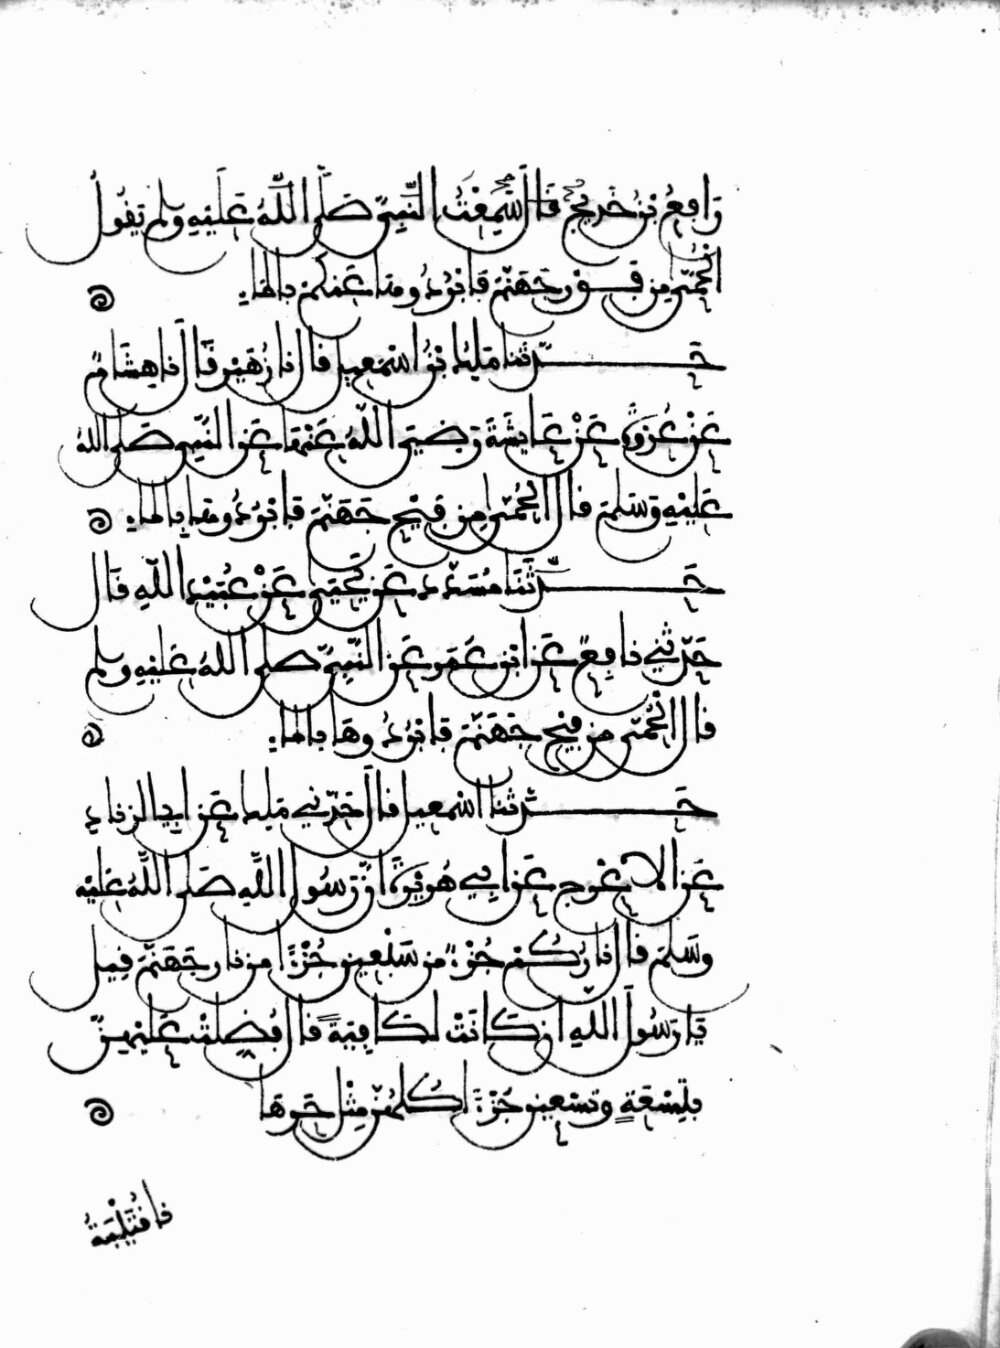 رَافِعُ بْنُ خَدِيجٍ قَالَ سَمِعْتُ النَّبِيَّ صَلَّى اللَّهُ عَلَيْهِ وسلم يَقُولُ
الْحُمَّى مِن فَوْرِ جَهَنَّمَ فَابْرُدُوهَا عَنكُمْ بِالْمَاءِ
حَدَّثَنَا مَلِكُ بْنُ اسْمَعِيلَ قَالَ نَا زُهَيْرٌ قَالَ نَا هِشَامٌ
عَنْ عُرْوَةَ عَنْ عَايِشَةَ رَضِيَ اللَّهُ عَنْهَا عَنِ النَّبِيِّ صَلَّى اللَّهُ
عَلَيْهِ وَسَلَّمَ قَالَ الْحُمَّى مِن فَيْحِ جَهَنَّمَ فَابْرُدُوهَا بِالْمَاءِ
حَدَّثَنَا مُسَدَّدٌ عَن يَحْيَى عَنْ عُبَيْدِ اللَّهِ قَالَ
حَدَّثَنِي نَافِعٌ عَنِ ابْنِ عُمَرَ عَنِ النَّبِيِّ صَلَّى اللَّهُ عَلَيْهِ وسلم
قَالَ الْحُمَّى مِن فَيْحِ جَهَنَّمَ فَابْرُدُوهَا بِالْمَاءِ
حَدَّثَنَا اسْمَعِيلُ قَالَ حَدَّثَنِي مَلِكٌ عَنَ ابِي الزِّنَادِ
عَنِ الاعْرَجِ عَنَ ابِي هُرَيْرَةَ انَّ رَسُولَ اللَّهِ صَلَّى اللَّهُ عَلَيْهِ
وَسَلَّمَ قَالَ نَارُكُمْ جُزْءٌ مِن سَبْعِينَ جُزْءًا مِن نَارِ جَهَنَّمَ قِيلَ
يَا رَسُولَ اللَّهِ ان كَانَتْ لَكَافِيَةً قَالَ فُضِّلَتْ عَلَيْهِنَّ
بِتِسْعَةٍ وَسِتِّينَ جُزْءًا كُلُّهُنَّ مِثْلُ حَرِّهَا
نَا قُتَيْبَةُ